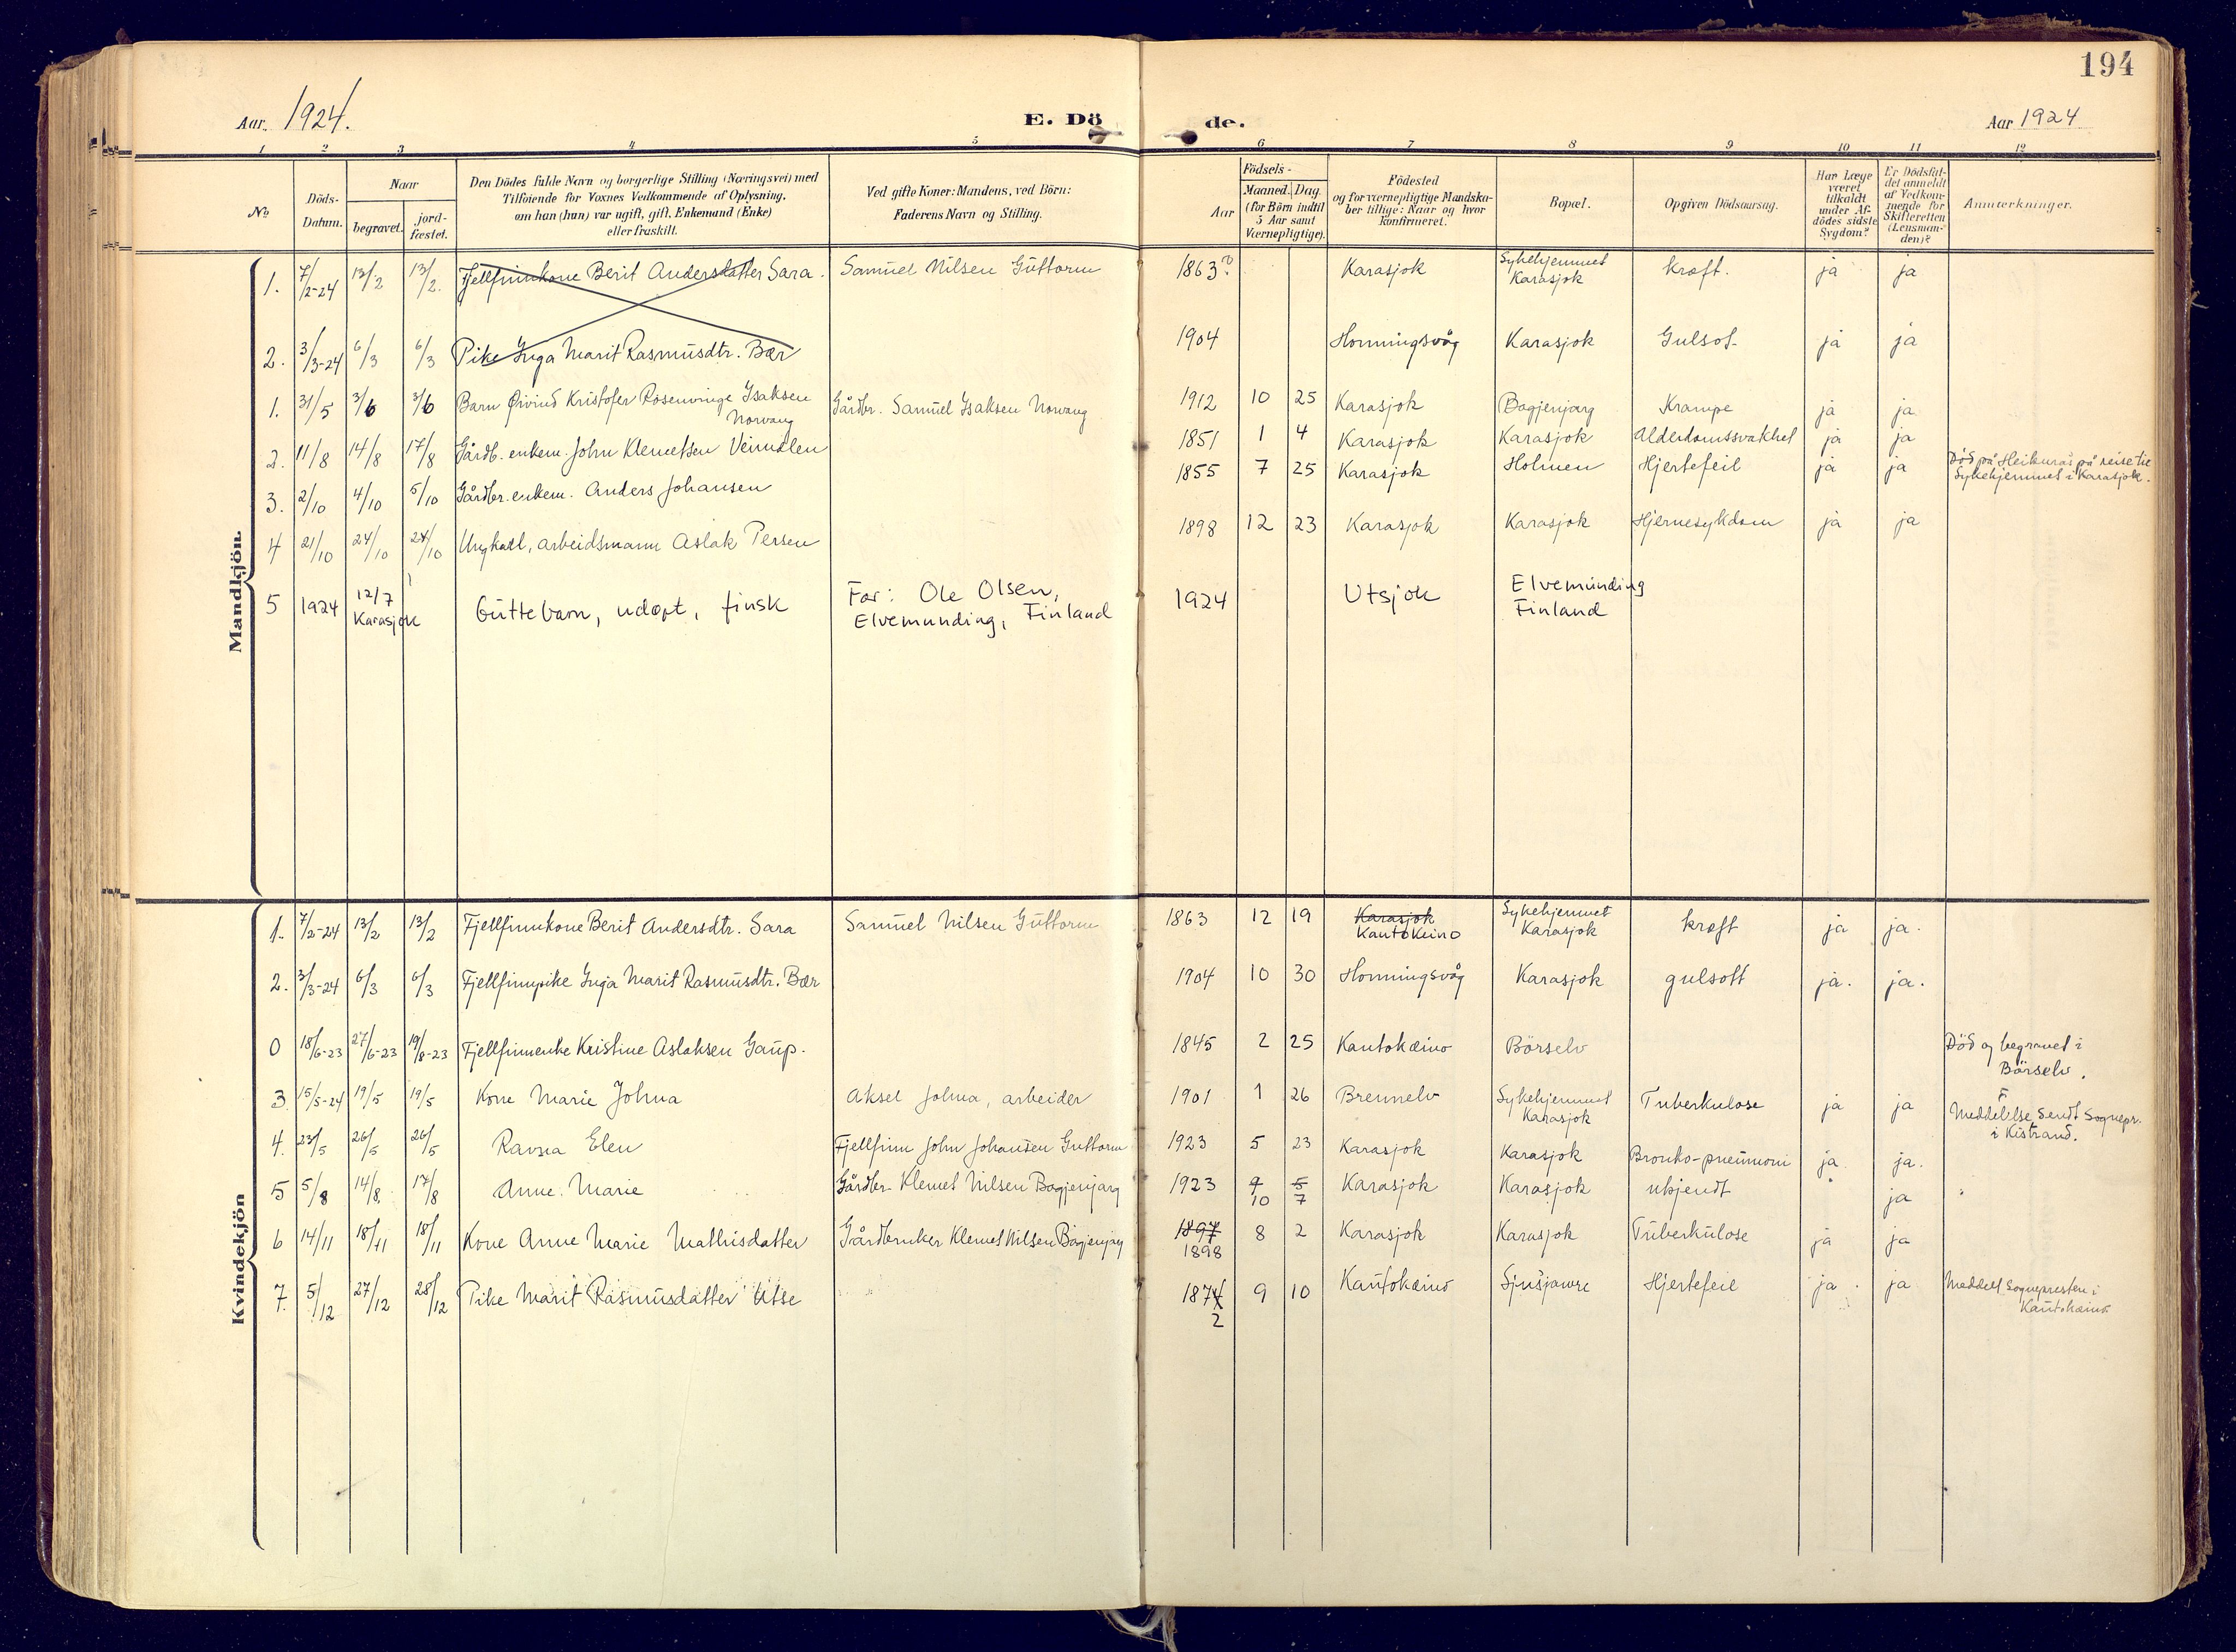 194
Aar. 1924.
E. Dö
de.
Aar 1924
1 2 3 4 5 6 7 8 9 10 11 12
No
Döds-Datum.
Naar
begravet.
jord-fæstet.
Den Dödes fulde Navn og borgerlige Stilling (Næringsvei) med
Tilföiende for Voxnes Vedkommende af Oplysning,
om han (hun) var ugift, gift, Enkemand (Enke)
eller fraskilt.
Ved gifte Koner: Mandens, ved Börn:
Faderens Navn og Stilling.
Födsels-
Aar
Maaned. Dag.
(for Börn indtil
5 Aar samt
Værnepligtige).
Födested
og for værnepligtige Mandska-
ber tillige: Naar og hvor
konfirmeret.
Bopæl.
Opgiven Dödsaarsag.
Har Læge
været
tilkaldt
under Af-
dödes sidste
Sygdom?
Er Dödsfal-
det anmeldt
af Vedkom-
mende for
Skifteretten
(Lensman-
den)?
Anmærkninger.
Mandkjön.
1. 7/2-24 13/2 13/2. Fjellfinnkone Berit Andersdatter Sara. Samuel Nilsen Guttorm 1863? Karasjok Sykehjemmet Karasjok kræft. ja ja
2. 3/3-24 6/3 6/3 Pike Inga Marit Rasmusdtr. Bær 1904 Honningsvåg Karasjok Gulsot ja ja
1. 31/5 3/6 3/6 Barn Øivind Kristofer Rosenvinge Isaksen Norvang Gårdbr. Samuel Isaksen Norvang 1912 10 25 Karasjok Bagjenjarg Krampe ja ja
2. 11/8 14/8 17/8 Gårdb. enkem. John Klemetsen Veimalen 1851 1 4 Karasjok Karasjok Alderdomssvakhet ja ja
3. 2/10 4/10 5/10 Gårdbr. enkem. Anders Johansen 1855 7 25 Karasjok Holmen Hjertefeil ja ja Död på Heikuras på reise til
Sykehjemmet i Karasjok.
4 21/10 24/10 24/10 Ungkarl, arbeidsmann Aslak Persen 1898 12 23 Karasjok Karasjok Hjernesykdom ja ja
5 1924 12/7 Karasjok Guttebarn, udøpt, finsk Far: Ole Olsen, Elvemunding, Finland 1924 Utsjok Elvemunding Finland
Kvindekjön
1. 7/2-24 13/2 13/2 Fjellfinnkone Berit Andersdtr. Sara Samuel Nilsen Guttorm 1863 12 19 Karasjok Kautokeino Sykehjemmet Karasjok kræft ja ja.
2. 3/3-24 6/3 6/3 Fjellfinnpike Inga Marit Rasmusdtr. Bær 1904 10 30 Honningsvåg Karasjok gulsott ja. ja.
0 18/6-23 27/6-23 19/8-23 Fjellfinnenke Kristine Aslaksen Gaup. 1845 2 25 Kautokeino Börselv Död og begravet i
Börselv.
3. 15/5-24 19/5 19/5 Kone Marie Johna Aksel Johna, arbeider 1901 1 26 Brennelv Sykehjemmet Karasjok Tuberkulose ja ja Meddelelse sendt Sognepr.
i Kistrand.
4. 23/5 26/5 26/5 Ravna Elen Fjellfinn John Johansen Guttorm 1923 5 23 Karasjok Karasjok Bronko-pneumoni ja ja.
5 5/8 14/8 17/8 Anne Marie Gårdbr. Klemet Nilsen Bagjenjarg 1923 9 5 10 7 Karasjok Karasjok ukjendt ja
6 14/11 18/11 18/11 Kone Anne Marie Mathisdatter Gårdbruker Klemet Nilsen Bagjenjarg 1897 1898 8 2 Karasjok Karasjok Tuberkulose ja ja
7. 5/12 27/12 28/12 Pike Marit Rasmusdatter Utse 1874 2 9 10 Kautokeino Sjusjavre Hjertefeil ja ja Meddelt Sognepresten i
Kautokeino